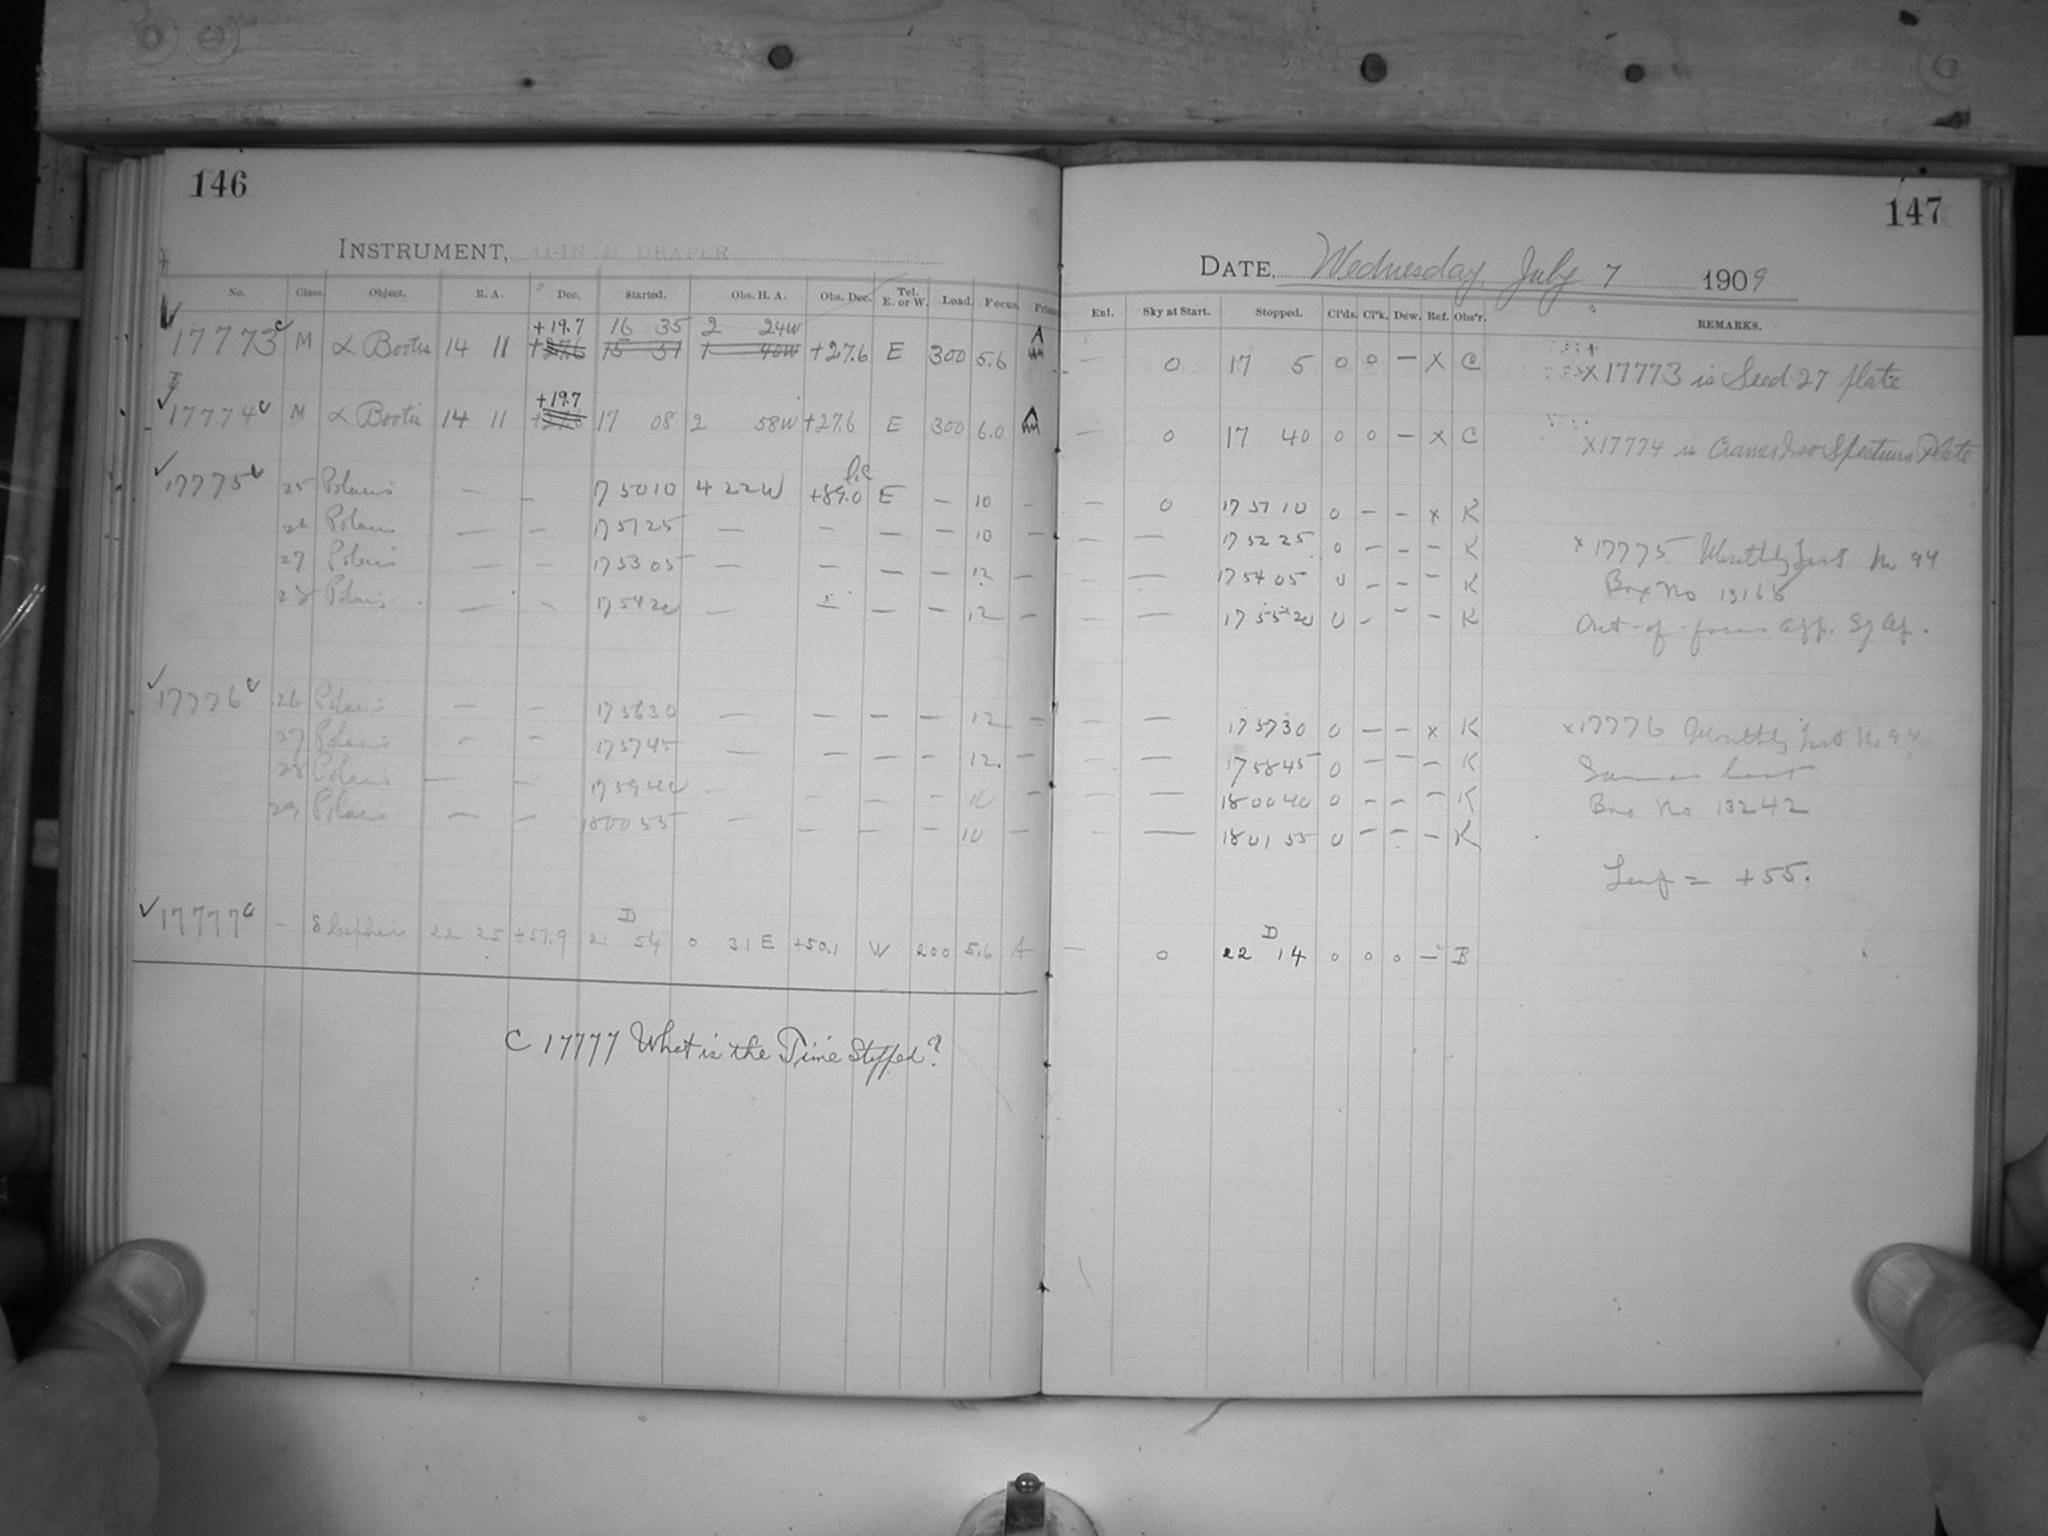 146
INSTRUMENT, 11-INCH DRAPER
No. Class. Object. R. A. Dec. Started. Obs. H. A. Obs. Dec. Tel. E. or W. Load. Focus.
17773 c M α Bootis 14 11 +19.7 16 35 2 24W +27.6 E 300 5.6 A
17774 c M α Bootis 14 11 +19.7 17 08 2 58W +27.6 E 300 6.0 A
17775 c 25 Polaris — — 17 50 10 4 22W +89.0 E — 10 —
26 Polaris — — 17 51 25 — — — — 10 —
27 Polaris — — 17 53 05 — — — — 12 —
28 Polaris — — 17 54 20 — — — — 12 —
17776 c 26 Polaris — — 17 56 30 — — — — 12 —
27 Polaris — — 17 57 45 — — — — 12 —
28 Polaris — — 17 59 40 — — — — 10 —
29 Polaris — — 18 00 55 — — — — 10 —
D
17777 c — δ Cephei 22 25 +57.9 21 54 0 31 E +50.1 W 200 5.6 A
C 17777 What is the Time Stopped?
147
DATE, Wednesday, July 7 1909
Enl. Sky at Start. Stopped. Cl'ds. Cl'k. Dew. Ref. Obs'r. REMARKS.
— 0 17 5 0 0 — x C x 17773 is Seed 27 plate
— 0 17 40 0 0 — x C x 17774 is Cramer Iso Spectrum Plate
— 0 17 51 10 0 — — x K
— — 17 52 25 0 — — — K x 17775 Monthly Test No 94
— — 17 54 05 0 — — — K Box No 13168
— — 17 55 20 0 — — — K Out-of-focus app. Sq Ap.
— — 17 57 30 0 — — x K x 17776 Monthly Test No 94
— — 17 58 45 0 — — — K Same as last
— — 18 00 40 0 — — — K Box No 13242
— — 18 01 55 0 — — — K
Temp = +55.
D
— 0 22 14 0 0 0 — B